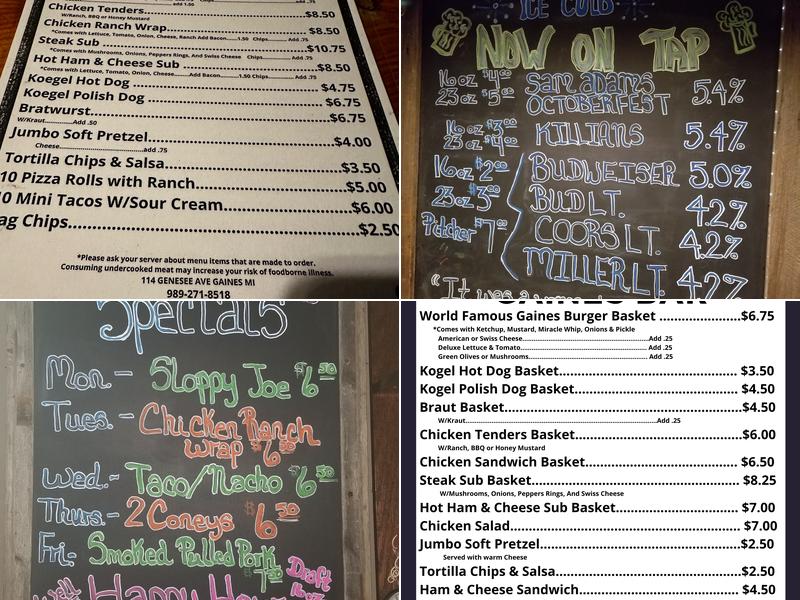 Chicken Tenders........$8.50
W/Ranch, BBQ or Honey Mustard
Chicken Ranch Wrap........$8.50
*Comes with Lettuce, Tomato, Onion, Cheese, Ranch Add Bacon......1.50 Chips........Add .75
Steak Sub........$10.75
*Comes with Mushrooms, Onions, Peppers Rings, And Swiss Cheese Chips........Add .75
Hot Ham & Cheese Sub........$8.50
*Comes with Lettuce, Tomato, Onion, Cheese........Add Bacon........1.50 Chips........Add .75
Koegel Hot Dog........$4.75
Koegel Polish Dog........$6.75
Bratwurst........$6.75
W/Kraut........Add .50
Jumbo Soft Pretzel........$4.00
Cheese........add .75
Tortilla Chips & Salsa........$3.50
10 Pizza Rolls with Ranch........$5.00
0 Mini Tacos W/Sour Cream........$6.00
ag Chips........$2.50
*Please ask your server about menu items that are made to order.
Consuming undercooked meat may increase your risk of foodborne illness.
114 GENESEE AVE GAINES MI
989-271-8518
ICE COLD
NOW ON TAP
16oz $4.00 Sam adams
23oz $5.00 OCTOBERFEST 5.4%
16oz $3.00 KILLIANS 5.4%
23oz $4.00
16oz $2.00 BUDWEISER 5.0%
23oz $3.00 BUD LT. 4.2%
Pitcher $7.00 COORS LT. 4.2%
MILLER LT. 4.2%
"It was a
Specials
Mon. - Sloppy Joe $6.50
Tues. - Chicken Ranch
wrap $6.50
Wed. - Taco/Nacho $6.50
Thurs. - 2 Coneys $6.50
Fri - Smoked Pulled Pork
$7.50
Draft
Happy Hour
World Famous Gaines Burger Basket ........$6.75
*Comes with Ketchup, Mustard, Miracle Whip, Onions & Pickle
American or Swiss Cheese........Add .25
Deluxe Lettuce & Tomato........Add .25
Green Olives or Mushrooms........Add .25
Kogel Hot Dog Basket........$3.50
Kogel Polish Dog Basket........$4.50
Braut Basket........$4.50
W/Kraut........Add .25
Chicken Tenders Basket........$6.00
W/Ranch, BBQ or Honey Mustard
Chicken Sandwich Basket........$6.50
Steak Sub Basket........$8.25
W/Mushrooms, Onions, Peppers Rings, And Swiss Cheese
Hot Ham & Cheese Sub Basket........$7.00
Chicken Salad........$7.00
Jumbo Soft Pretzel........$2.50
Served with warm Cheese
Tortilla Chips & Salsa........$2.50
Ham & Cheese Sandwich........$4.50